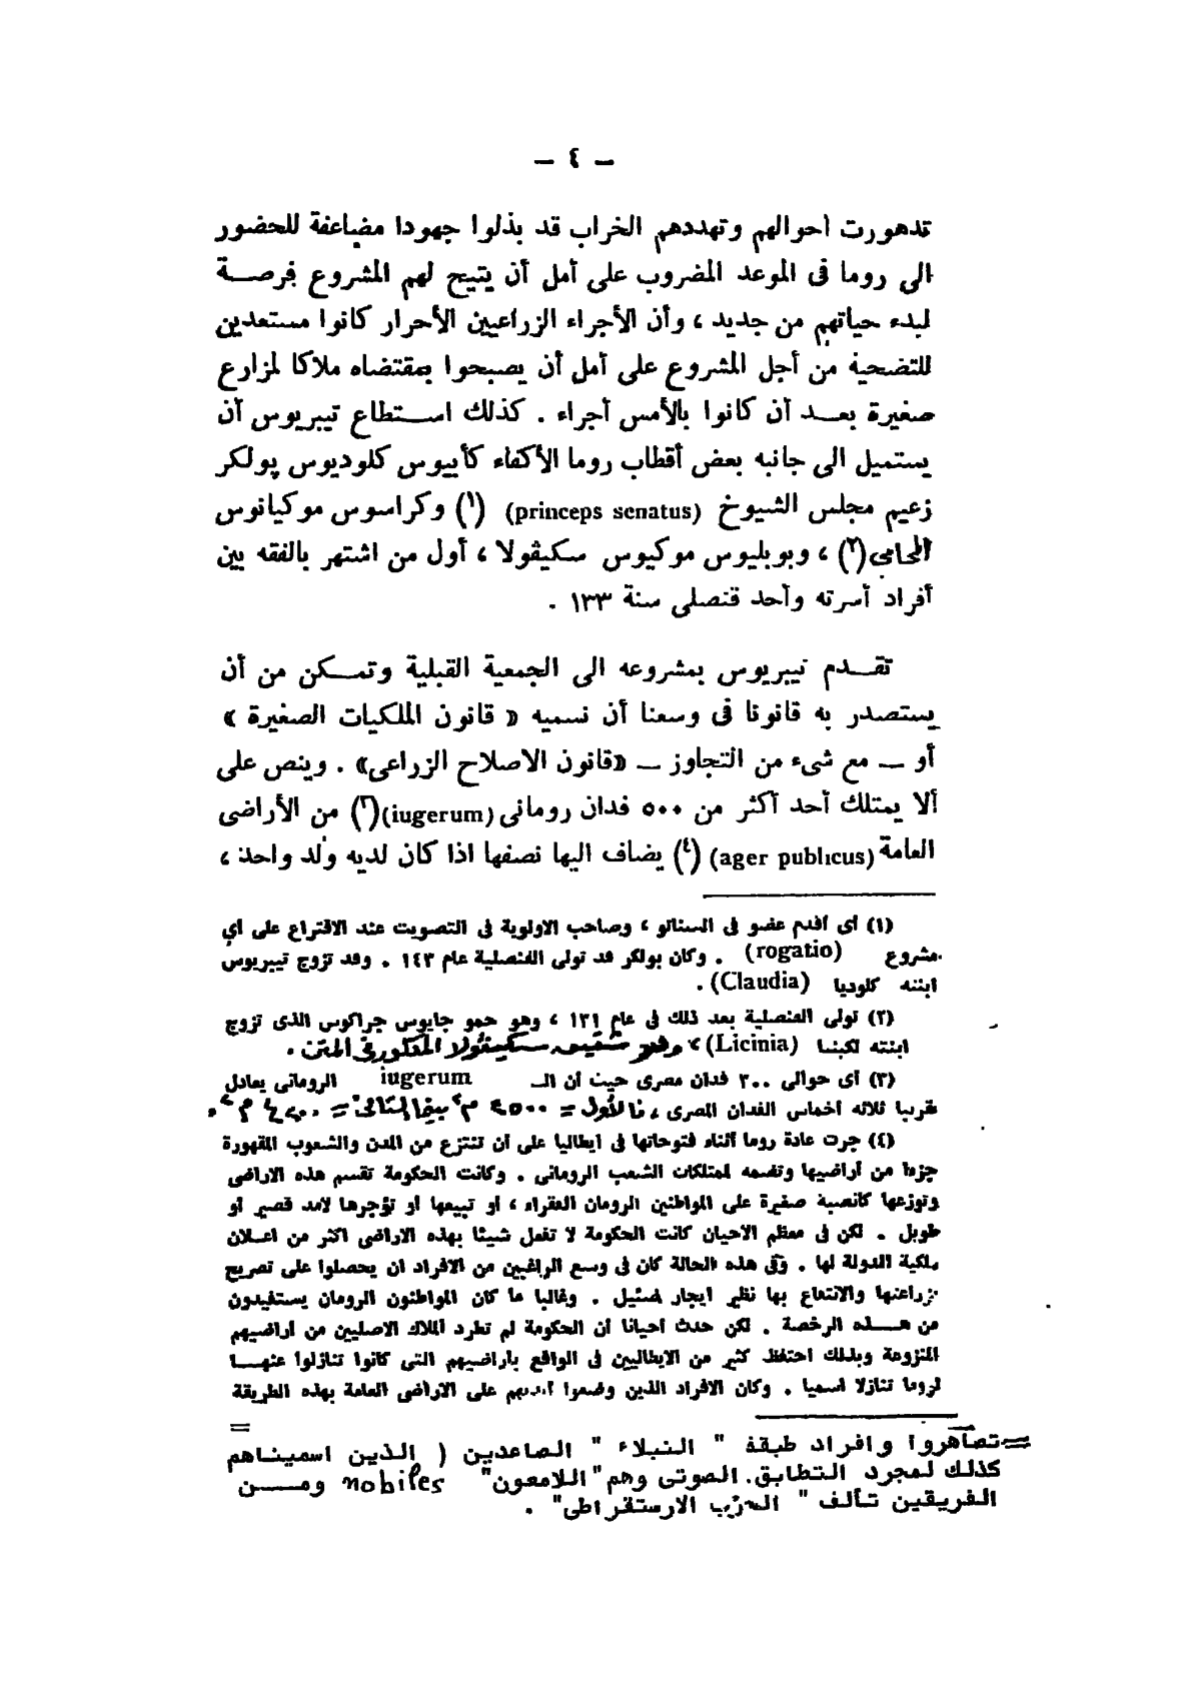 – ٤ –
تدهورت أحوالهم وتهددهم الخراب قد بذلوا جهودا مضاعفة للحضور
الى روما فى الموعد المضروب على أمل أن يتيح لهم المشروع فرصــة
لبدء حياتهم من جديد ، وأن الأجراء الزراعيين الأحرار كانوا مستعدين
للتضحية من أجل المشروع على أمل أن يصبحوا بمقتضاه ملاكا لمزارع
صغيرة بعــد أن كانوا بالأمس أجراء . كذلك استطاع تيبريوس أن
يستميل الى جانبه بعض أقطاب روما الأكفاء كأبيوس كلوديوس پولكر
زعيم مجلس الشيوخ (princeps senatus) (١) وكراسوس موكيانوس
المحامى(٢) ، وبوبليوس موكيوس سكيڤولا ، أول من اشتهر بالفقه بين
أفراد أسرته وأحد قنصلى سنة ١٣٣ .
تقــدم تيبريوس بمشروعه الى الجمعية القبلية وتمــكن من أن
يستصدر به قانونا فى وسعنا أن نسميه « قانون الملكيات الصغيرة »
أو – مع شىء من التجاوز – «قانون الاصلاح الزراعى» . وينص على
ألا يمتلك أحد أكثر من ٥٠٠ فدان رومانى (iugerum)(٣) من الأراضى
العامة (ager publicus) (٤) يضاف اليها نصفها اذا كان لديه ولد واحد ،
(١) أى أقدم عضو فى السناتو ، وصاحب الاولوية فى التصويت عند الاقتراع على أى
مشروع (rogatio) . وكان بولكر قد تولى القنصلية عام ١٤٣ . وقد تزوج تيبريوس
ابنته كلوديا (Claudia) .
(٢) تولى القنصلية بعد ذلك فى عام ١٣١ ، وهو حمو جايوس جراكوس الذى تزوج
ابنته لكينيا (Licinia) ، وهو شقيق سكيڤولا المذكور فى المتن .
(٣) أى حوالى ٣٠٠ فدان مصرى حيث أن الــ iugerum الرومانى يعادل
تقريبا ثلاثة أخماس الفدان المصرى ، فالأول = ٢٥٠٠ م٢ بينما الثانى = ٤٢٠٠ م٢ .
(٤) جرت عادة روما أثناء فتوحاتها فى ايطاليا على أن تنتزع من المدن والشعوب المقهورة
جزءا من أراضيها وتضمه لممتلكات الشعب الرومانى . وكانت الحكومة تقسم هذه الاراضى
وتوزعها كأنصبة صغيرة على المواطنين الرومان الفقراء ، أو تبيعها أو تؤجرها لأمد قصير أو
طويل . لكن فى معظم الاحيان كانت الحكومة لا تفعل شيئا بهذه الاراضى أكثر من اعــلان
ملكية الدولة لها . وفى هذه الحالة كان فى وسع الراغبين من الافراد أن يحصلوا على تصريح
بزراعتها والانتفاع بها نظير ايجار ضئيل . وغالبا ما كان المواطنون الرومان يستفيدون
من هــذه الرخصة . لكن حدث أحيانا أن الحكومة لم تطرد الملاك الاصليين من أراضيهم
المنزوعة وبذلك احتفظ كثير من الايطاليين فى الواقع بأراضيهم التى كانوا تنازلوا عنهــا
لروما تنازلا اسميا . وكان الافراد الذين وضعوا أيديهم على الاراضى العامة بهذه الطريقة
=
= تصاهروا وافراد طبقة " النبلاء " الصاعدين ( الذين اسميناهم
كذلك لمجرد التطابق الصوتى وهم "اللامعون" nobiles ومــن
الفريقين تألف " الحزب الارستقراطى" .